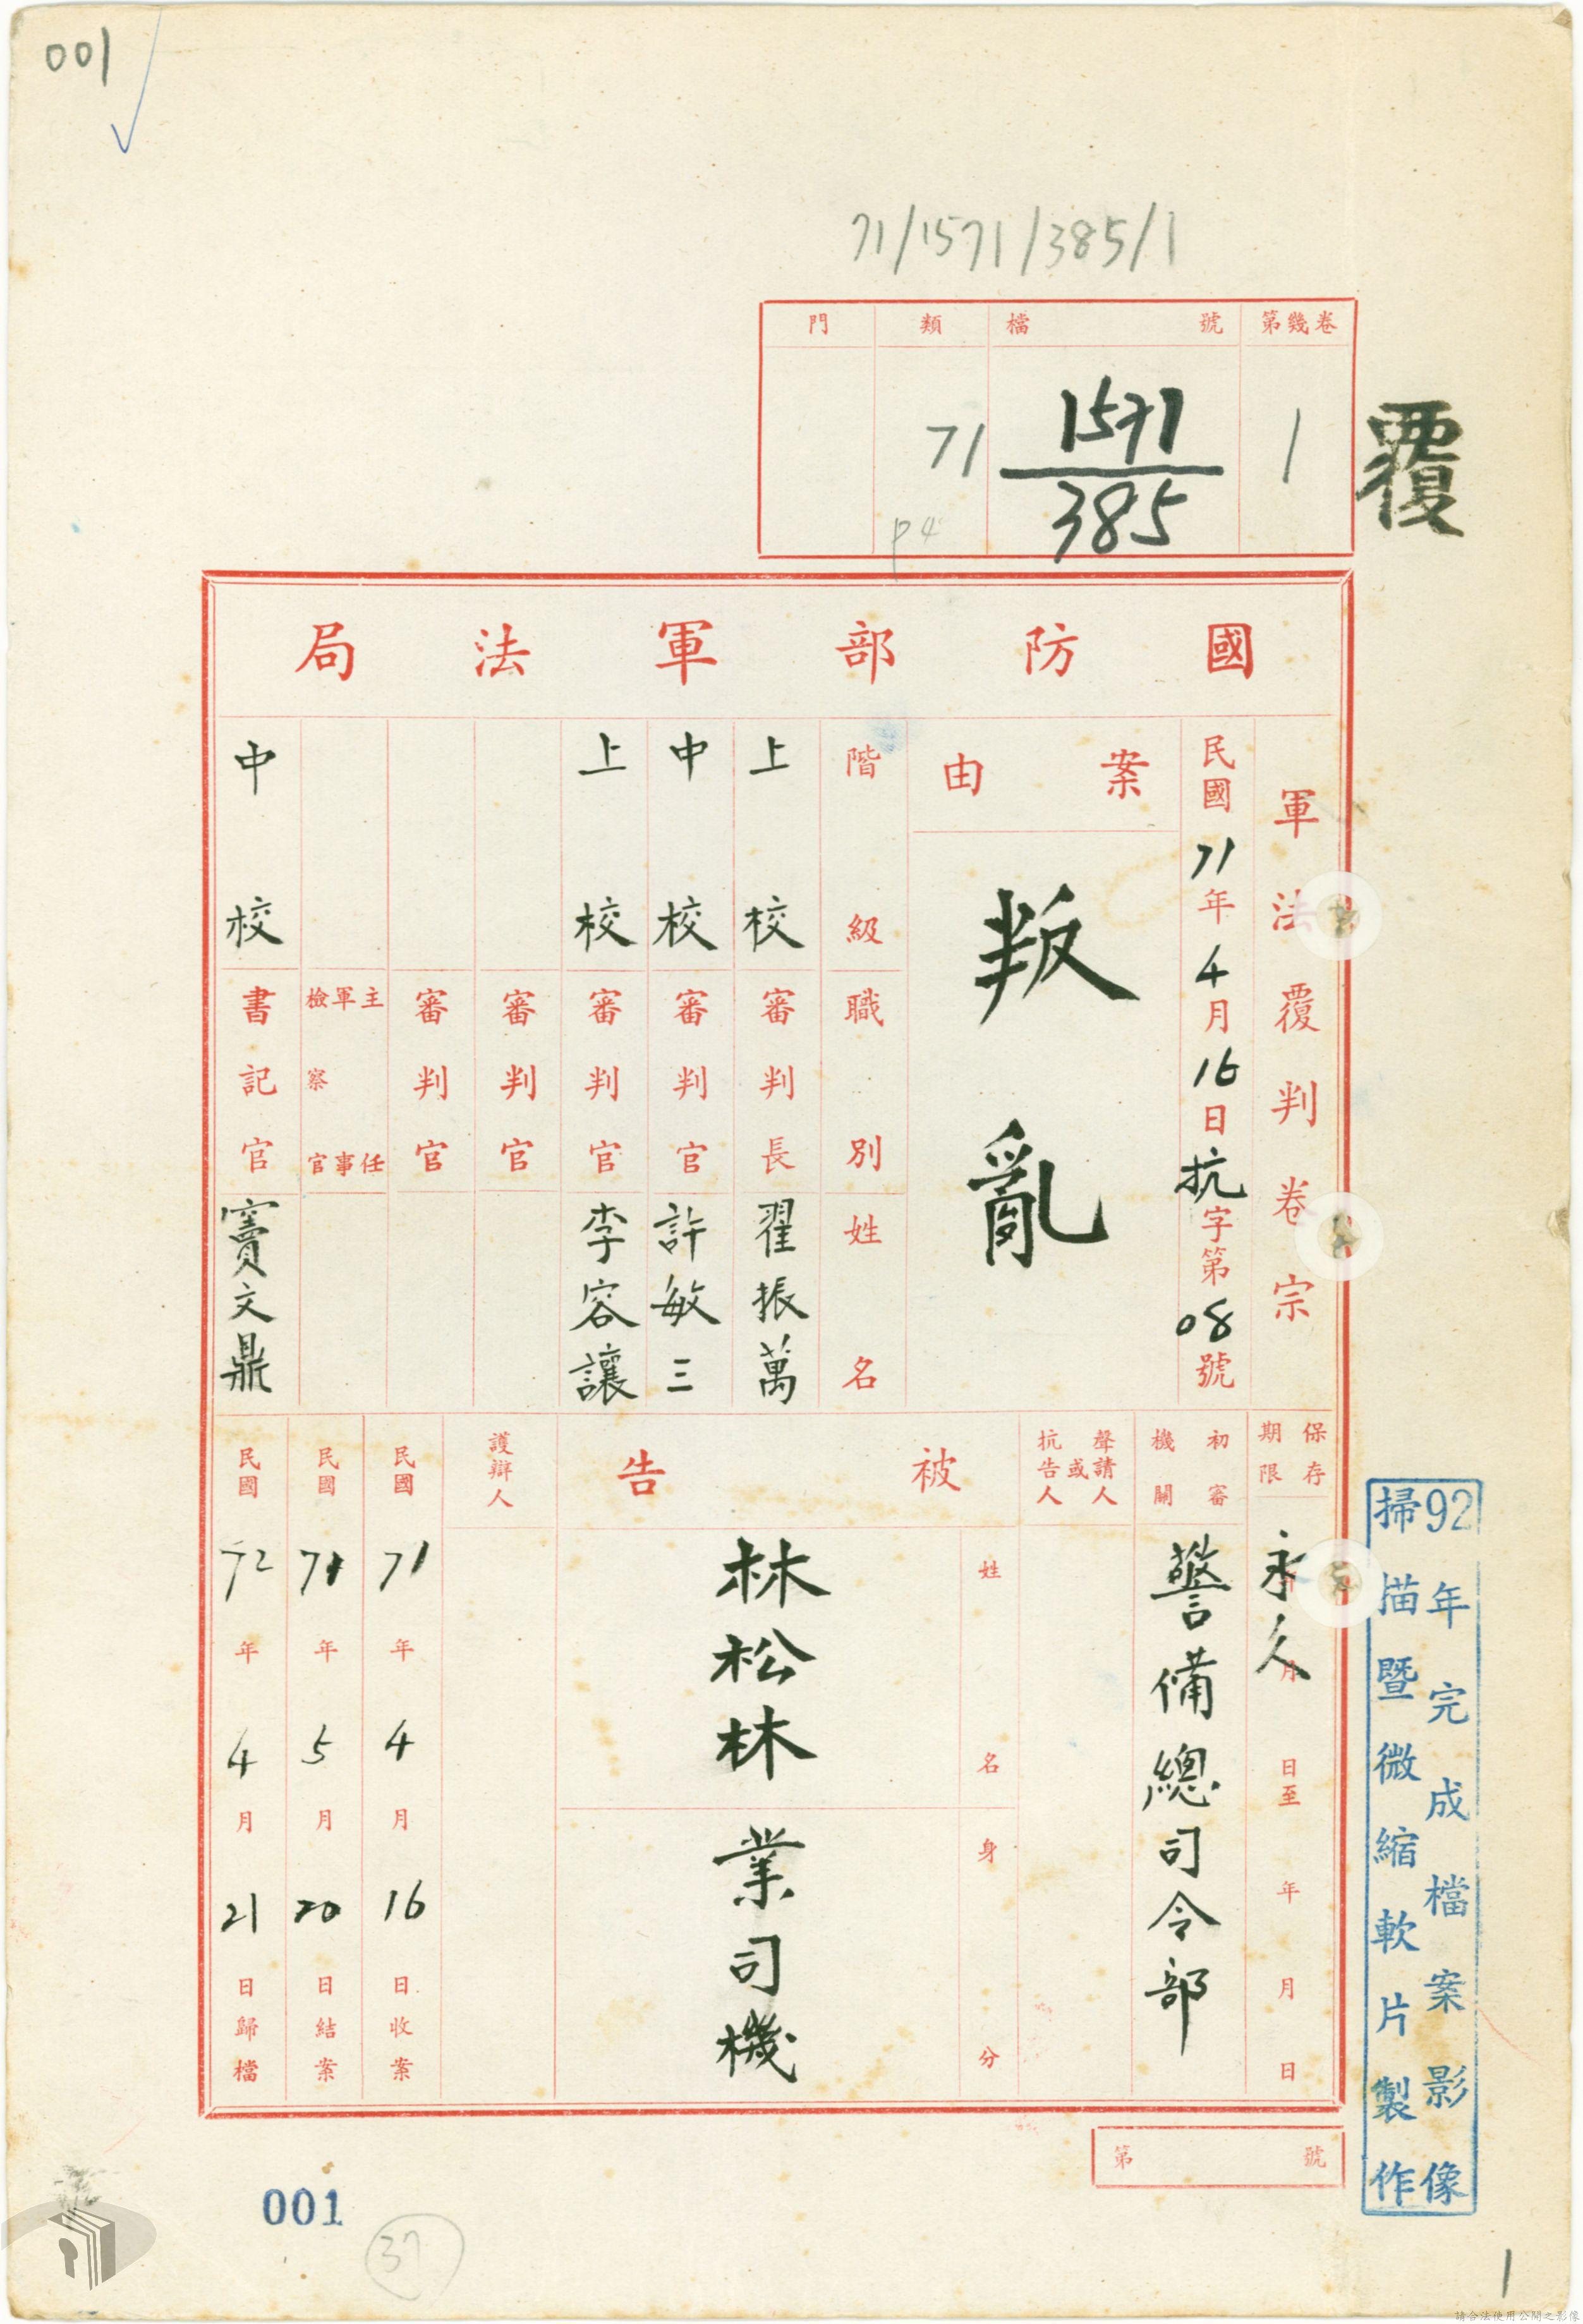 001
71/1571/385/1
第幾卷
1
檔號
1571
385
類
71
p4
門
覆
國防部軍法局
軍法覆判卷宗
民國71年4月16日抗字第08號
案由
叛亂
階級 職別 姓名
上校 審判長 翟振萬
中校 審判官 許敏三
上校 審判官 李容讓
審判官
審判官
主任軍事檢察官
中校 書記官 竇文鼎
保存期限
永久
年月日至年月日
初審機關
警備總司令部
聲請人或抗告人
被告
姓名
林松林
身分
業司機
護辯人
民國71年4月16日收案
民國71年5月20日結案
民國72年4月21日歸檔
第號
92年完成檔案影像
掃描暨微縮軟片製作
001
37
1
請合法使用公開之影像